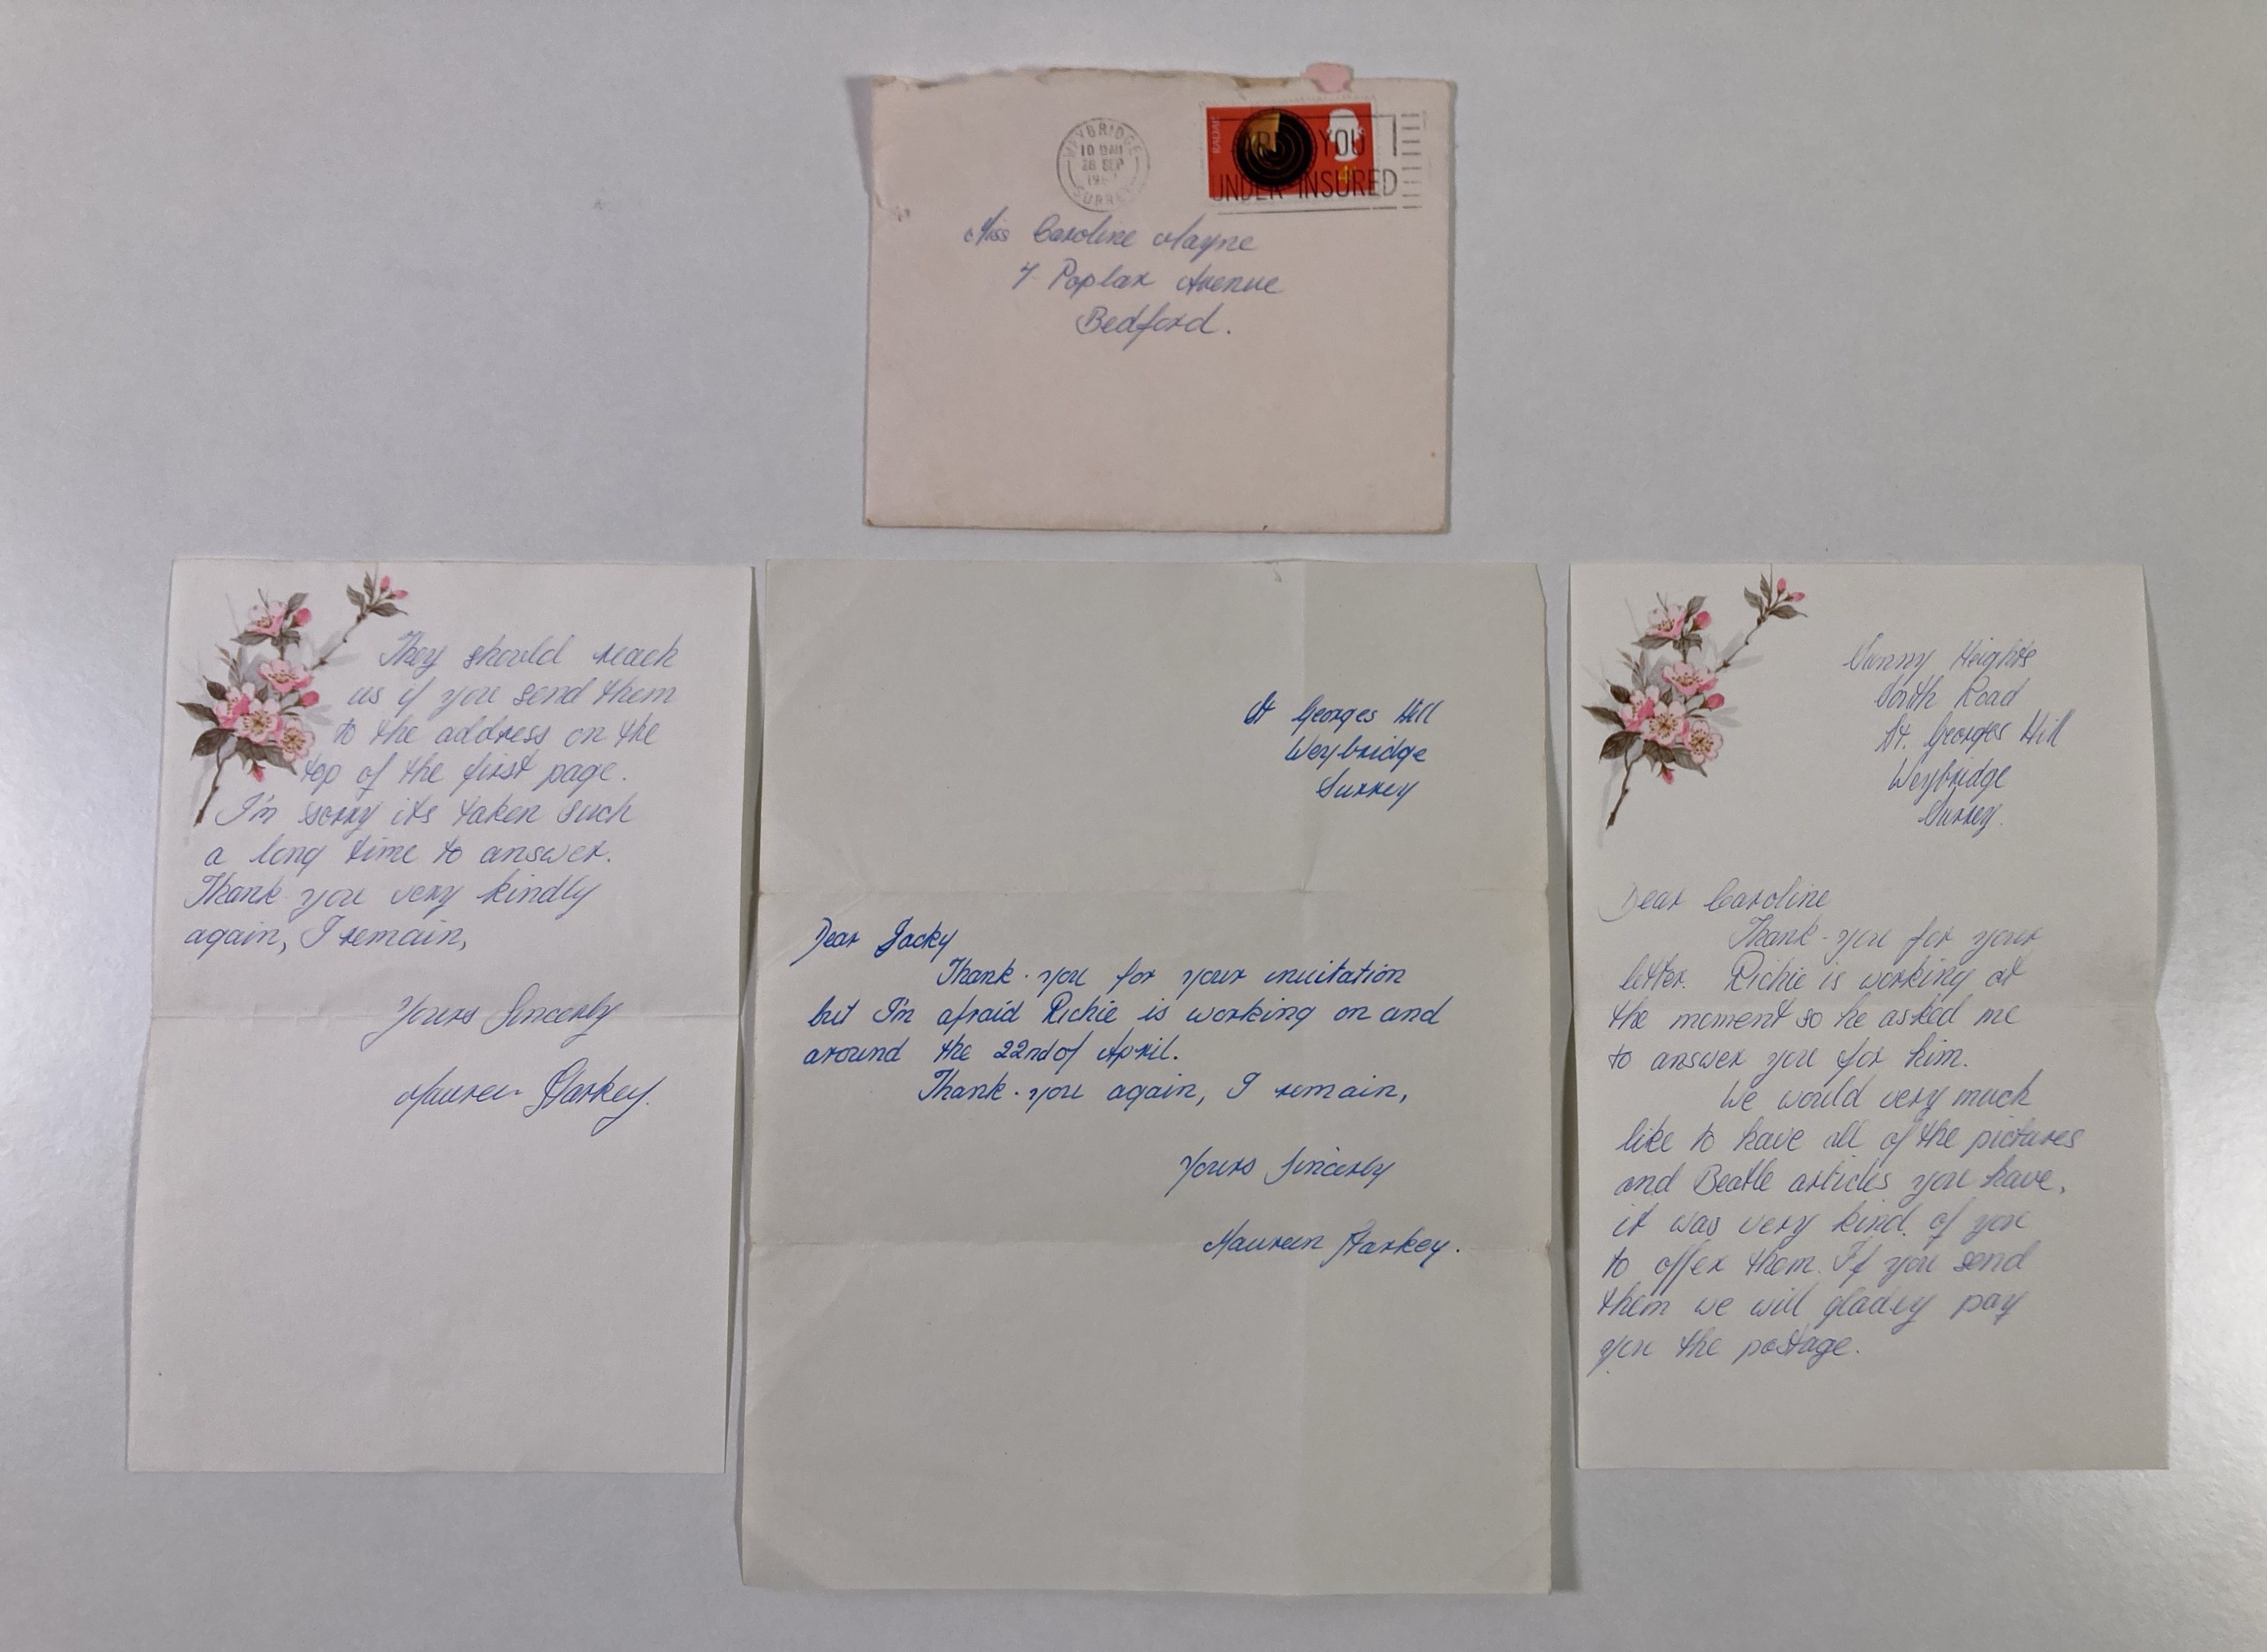 WEYBRIDGE
10 AM
28 SEP
SURREY
RADAR
ARE YOU
UNDER-INSURED
Miss Caroline Mayne
7 Poplar Avenue
Bedford.
They should reach
us if you send them
to the address on the
top of the first page.
I'm sorry its taken such
a long time to answer.
Thank you very kindly
again, I remain,
Yours Sincerly
Maureen Starkey.
St Georges Hill
Weybridge
Surrey
Dear Jacky
Thank-you for your invitation
but I'm afraid Richie is working on and
around the 22nd of April.
Thank-you again, I remain,
Yours Sincerly
Maureen Starkey.
Sunny Heights
South Road
St. Georges Hill
Weybridge
Surrey.
Dear Caroline
Thank-you for your
letter. Richie is working at
the moment so he asked me
to answer you for him.
We would very much
like to have all of the pictures
and Beatle articles you have,
it was very kind of you
to offer them. If you send
them we will gladly pay
you the postage.